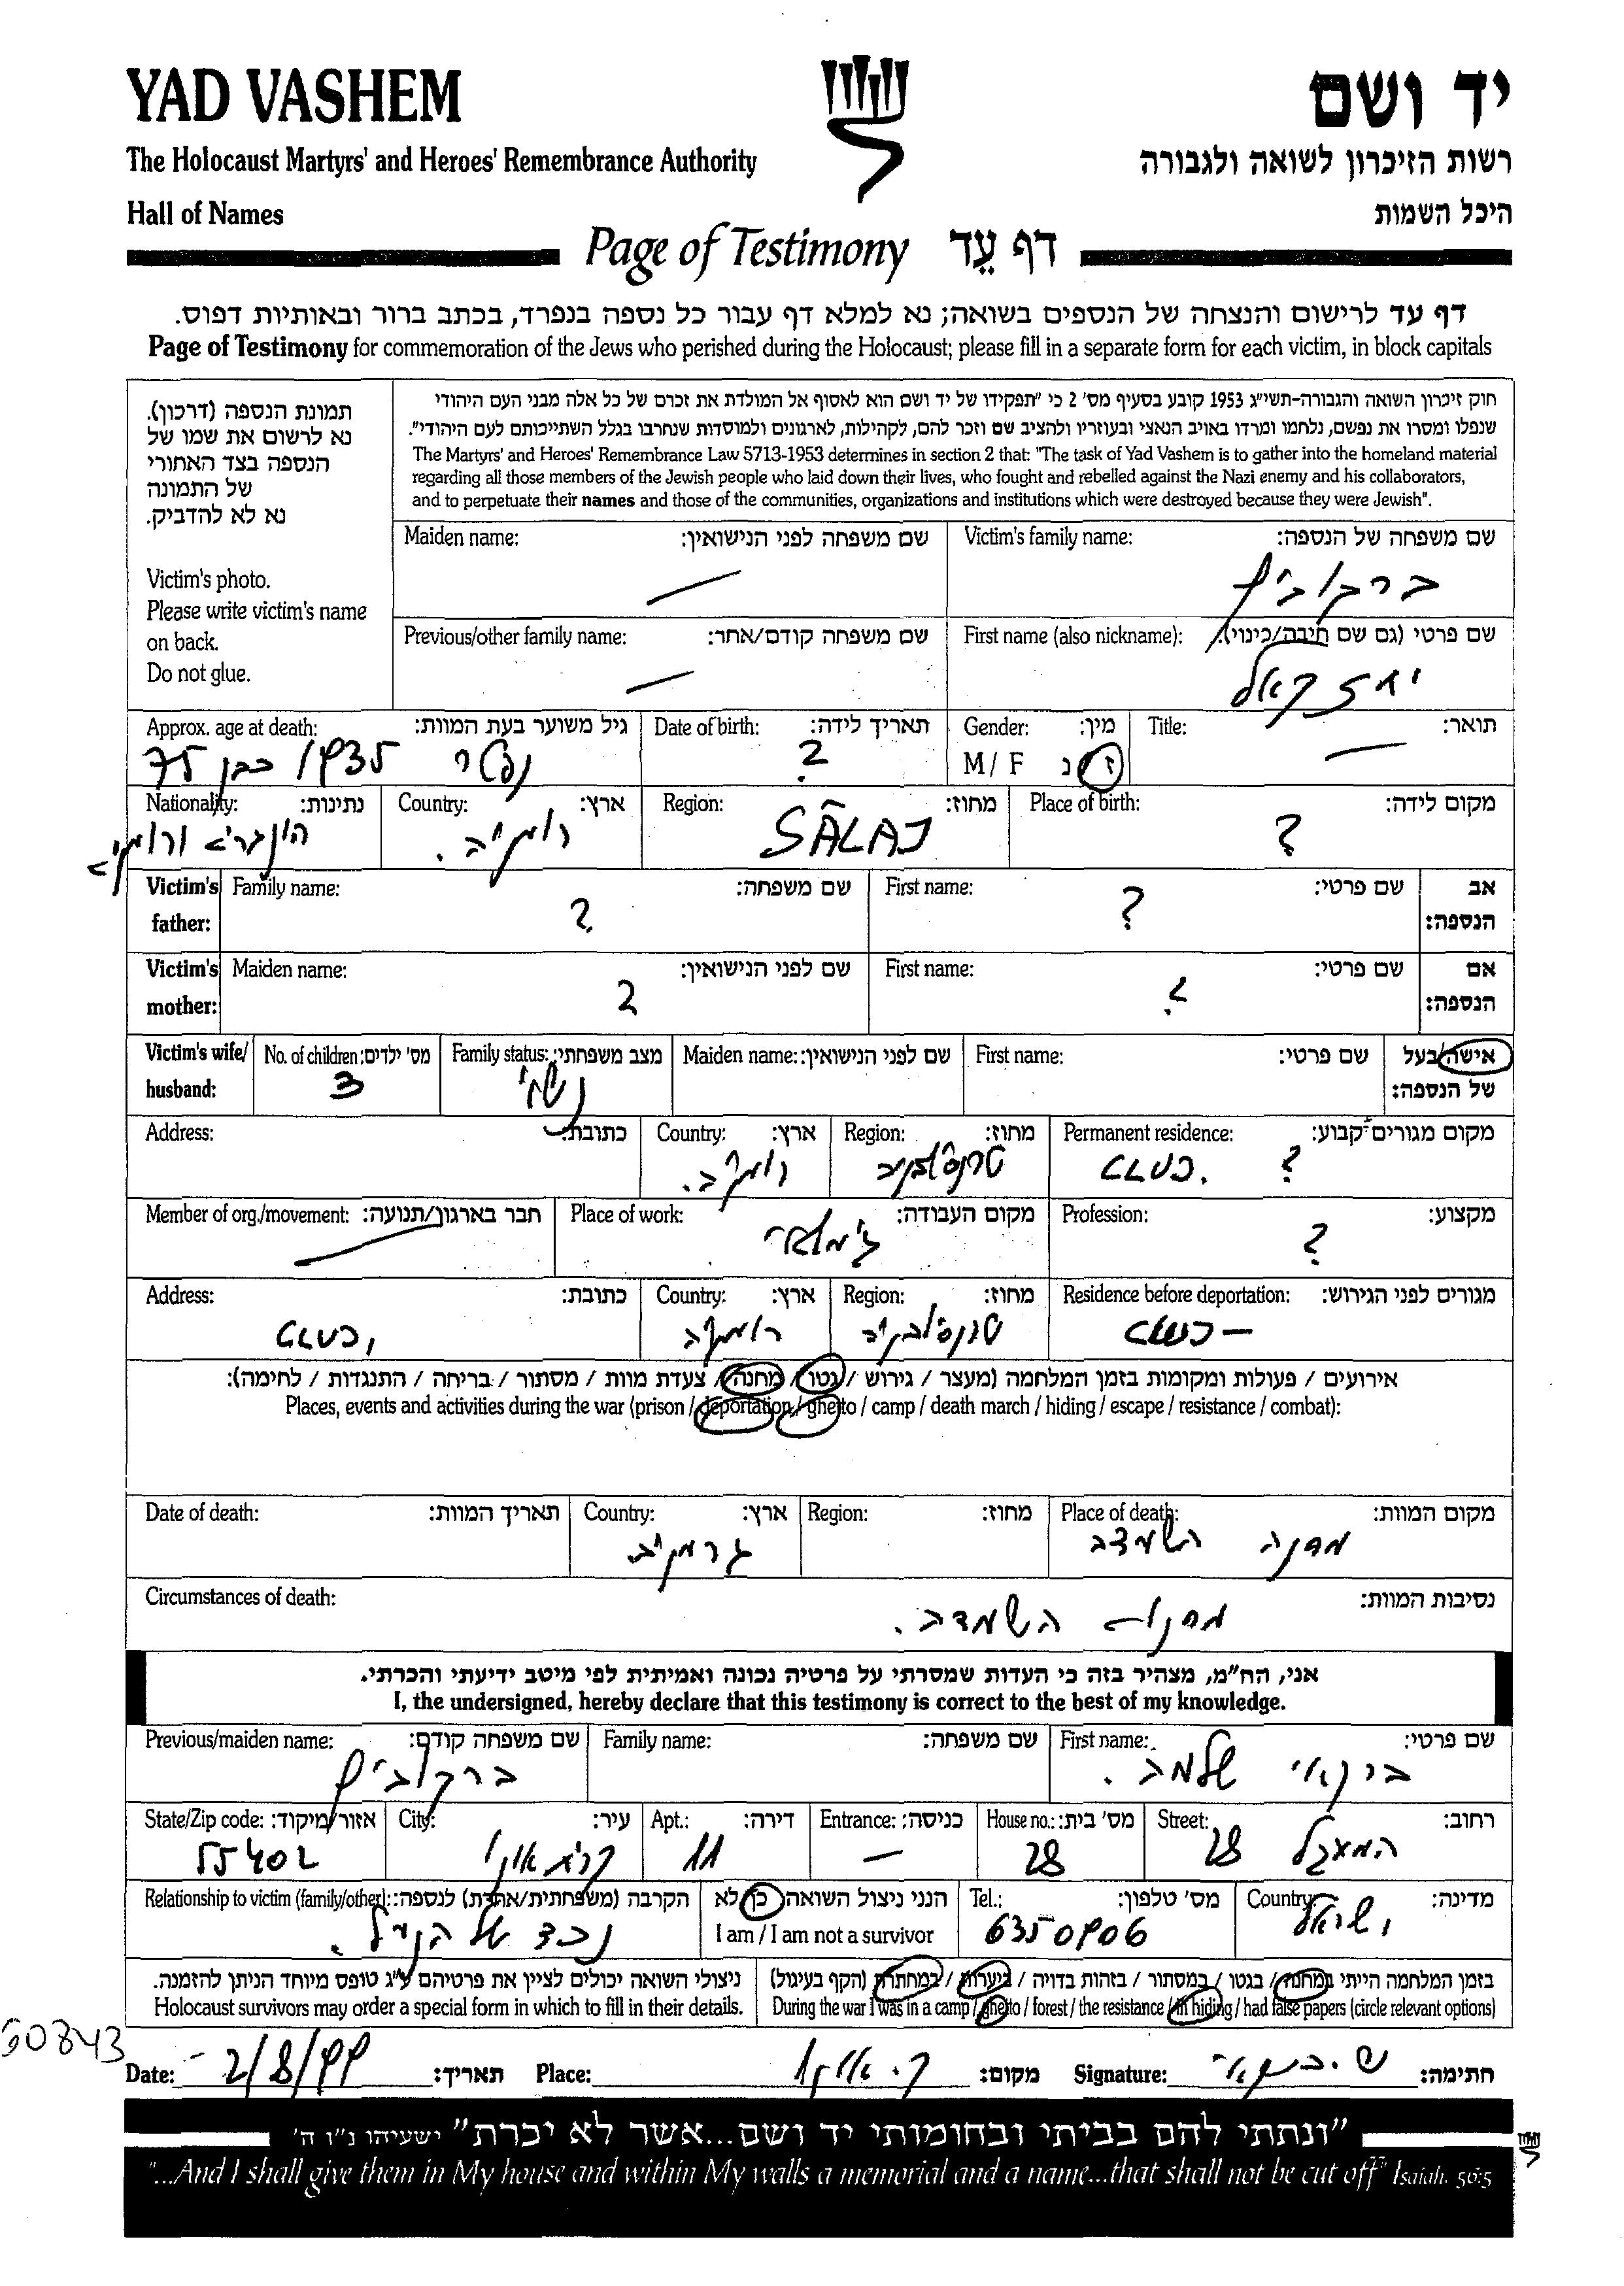 YAD VASHEM
יד ושם
The Holocaust Martyrs' and Heroes' Remembrance Authority
רשות הזיכרון לשואה ולגבורה
Hall of Names
היכל השמות
Page of Testimony דף עֵד
דף עד לרישום והנצחה של הנספים בשואה; נא למלא דף עבור כל נספה בנפרד, בכתב ברור ובאותיות דפוס.
Page of Testimony for commemoration of the Jews who perished during the Holocaust; please fill in a separate form for each victim, in block capitals
תמונת הנספה (דרכון).
נא לרשום את שמו של
הנספה בצד האחורי
של התמונה
נא לא להדביק.
Victim's photo.
Please write victim's name
on back.
Do not glue.
חוק זיכרון השואה והגבורה-תשי"ג 1953 קובע בסעיף מס' 2 כי "תפקידו של יד ושם הוא לאסוף אל המולדת את זכרם של כל אלה מבני העם היהודי
שנפלו ומסרו את נפשם, נלחמו ומרדו באויב הנאצי ובעוזריו ולהציב שם וזכר להם, לקהילות, לארגונים ולמוסדות שנחרבו בגלל השתייכותם לעם היהודי".
The Martyrs' and Heroes' Remembrance Law 5713-1953 determines in section 2 that: "The task of Yad Vashem is to gather into the homeland material
regarding all those members of the Jewish people who laid down their lives, who fought and rebelled against the Nazi enemy and his collaborators,
and to perpetuate their names and those of the communities, organizations and institutions which were destroyed because they were Jewish".
Maiden name: שם משפחה לפני הנישואין: Victim's family name: שם משפחה של הנספה:
ברקוביץ
Previous/other family name: שם משפחה קודם/אחר: First name (also nickname): שם פרטי (גם שם חיבה/כינוי):
יחזקאל
Approx. age at death: גיל משוער בעת המוות: Date of birth: תאריך לידה: Gender: מין: Title: תואר:
1935 כבן 75 ? M / F ז נ
Nationality: נתינות: Country: ארץ: Region: מחוז: Place of birth: מקום לידה:
רומניה. SĂLAJ ?
Victim's father: Family name: שם משפחה: First name: שם פרטי: אב הנספה:
? ?
Victim's mother: Maiden name: שם לפני הנישואין: First name: שם פרטי: אם הנספה:
? ?
Victim's wife/ husband: No. of children: מס' ילדים: Family status: מצב משפחתי: Maiden name: שם לפני הנישואין: First name: שם פרטי: אישה/בעל של הנספה:
3 נשוי
Address: כתובת: Country: ארץ: Region: מחוז: Permanent residence: מקום מגורים קבוע:
רומניה. טרנסילבניה CLUJ. ?
Member of org./movement: חבר בארגון/תנועה: Place of work: מקום העבודה: Profession: מקצוע:
?
Address: כתובת: Country: ארץ: Region: מחוז: Residence before deportation: מגורים לפני הגירוש:
CLUJ רומניה טרנסילבניה CLUJ –
אירועים / פעולות ומקומות בזמן המלחמה (מעצר / גירוש / גטו / מחנה / צעדת מוות / מסתור / בריחה / התנגדות / לחימה):
Places, events and activities during the war (prison / deportation / ghetto / camp / death march / hiding / escape / resistance / combat):
Date of death: תאריך המוות: Country: ארץ: Region: מחוז: Place of death: מקום המוות:
גרמניה. מחנה השמדה
Circumstances of death: נסיבות המוות:
מחנות השמדה.
אני, הח"מ, מצהיר בזה כי העדות שמסרתי על פרטיה נכונה ואמיתית לפי מיטב ידיעתי והכרתי.
I, the undersigned, hereby declare that this testimony is correct to the best of my knowledge.
Previous/maiden name: שם משפחה קודם: Family name: שם משפחה: First name: שם פרטי:
ברקוביץ שלמה.
State/Zip code: אזור/מיקוד: City: עיר: Apt.: דירה: Entrance: כניסה: House no.: מס' בית: Street: רחוב:
55402 קרית אונו 11 – 28 28
Relationship to victim (family/other): הקרבה (משפחתית/אחרת) לנספה: הנני ניצול השואה: כן לא Tel.: מס' טלפון: Country: מדינה:
נכד של הנ"ל. I am / I am not a survivor 6350906 ישראל
ניצולי השואה יכולים לציין את פרטיהם ע"ג טופס מיוחד הניתן להזמנה. בזמן המלחמה הייתי במחנה / בגטו / במסתור / בזהות בדויה / ביערות / במחתרת (הקף בעיגול)
Holocaust survivors may order a special form in which to fill in their details. During the war I was in a camp / ghetto / forest / the resistance / in hiding / had false papers (circle relevant options)
60843
Date: 2/8/99 תאריך: Place: ק. אונו מקום: Signature: חתימה:
"ונתתי להם בביתי ובחומותי יד ושם...אשר לא יכרת" ישעיהו נ"ו ה'
"...And I shall give them in My house and within My walls a memorial and a name...that shall not be cut off" Isaiah. 56:5